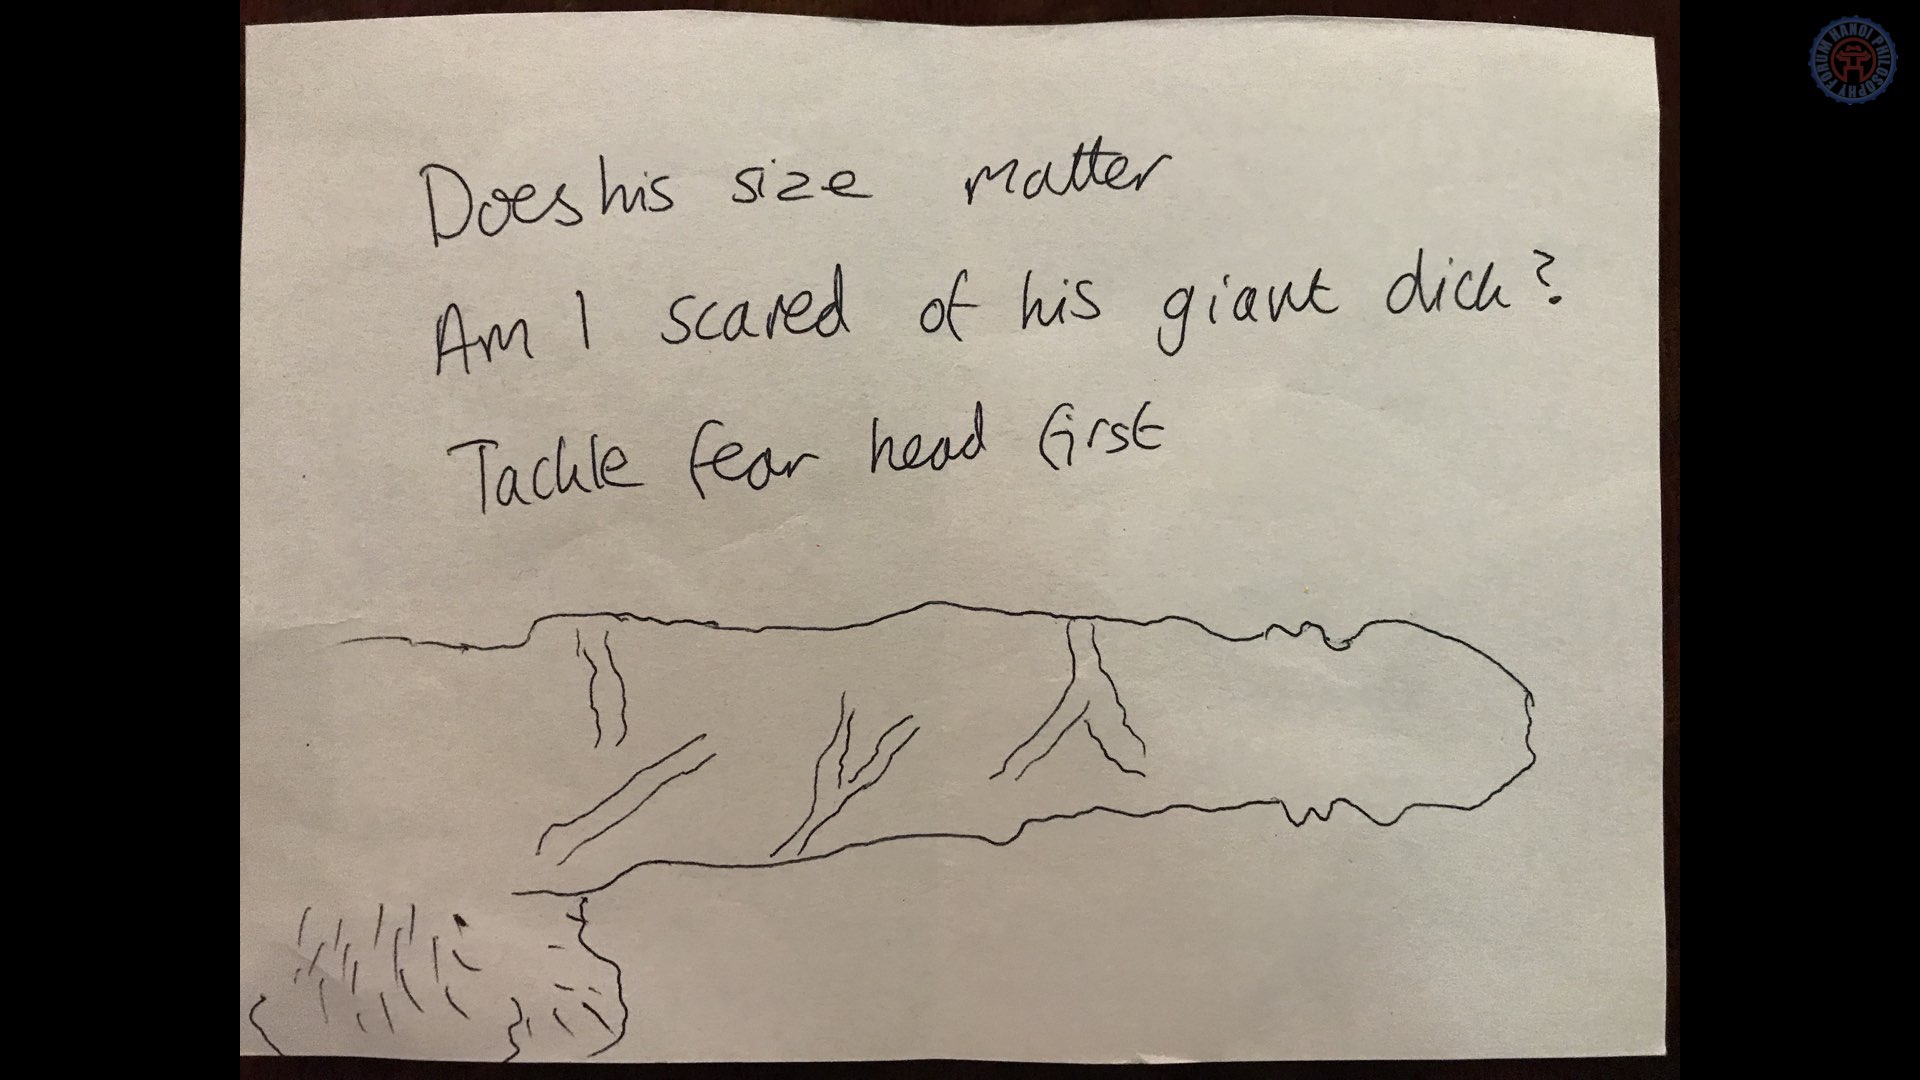 Does his size matter
Am I scared of his giant dick?
Tackle fear head first
HANOI PHILOSOPHY FORUM